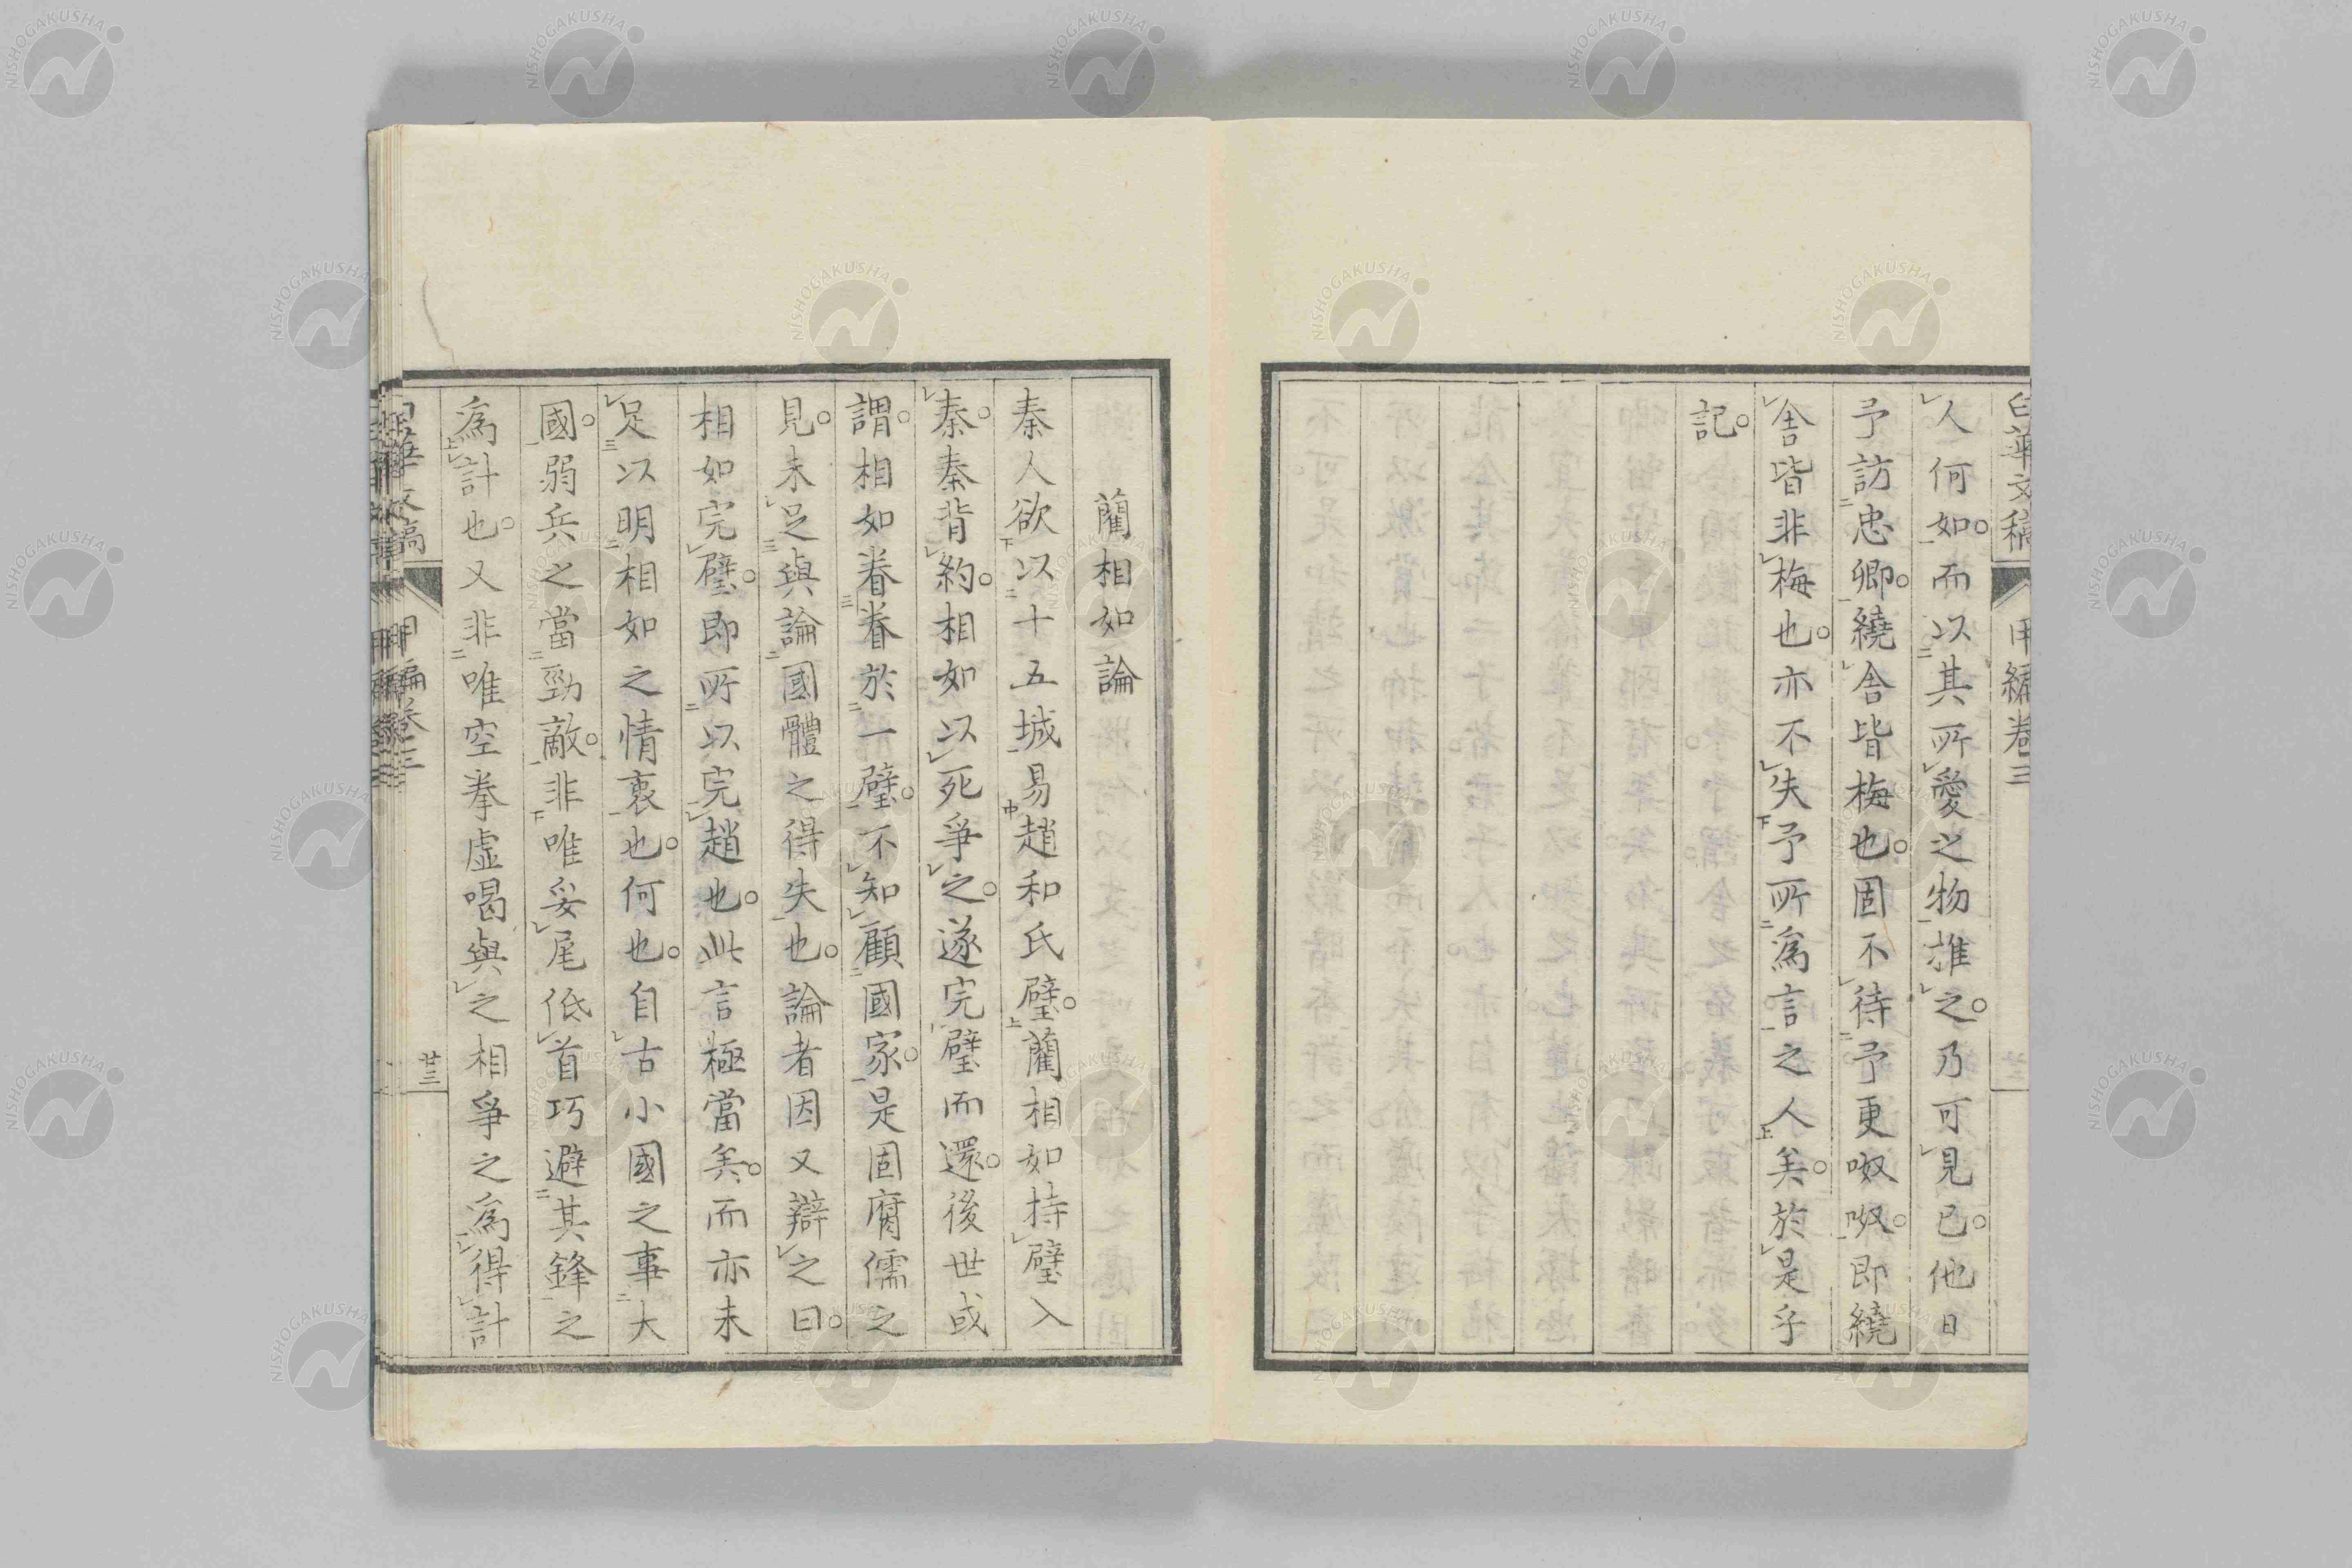 白華文稿 甲編卷三
人何如。而以其所愛之物推之。乃可見已。他日
予訪忠卿。繞舎皆梅也。固不待予更呶呶。即繞
舎皆非梅也。亦不失予所爲言之人矣。於是乎
記。
藺相如論
秦人欲以十五城易趙和氏璧。藺相如持璧入
秦。秦背約。相如以死爭之。遂完璧而還。後世或
謂。相如眷眷於一璧。不知顧國家。是固腐儒之
見。未足與論國體之得失也。論者因又辯之曰。
相如完璧。即所以完趙也。此言極當矣。而亦未
足以明相如之情衷也。何也。自古小國之事大
國。弱兵之當勁敵。非唯妥尾低首巧避其鋒之
爲計也。又非唯空拳虛喝與之相爭之爲得計
廿三